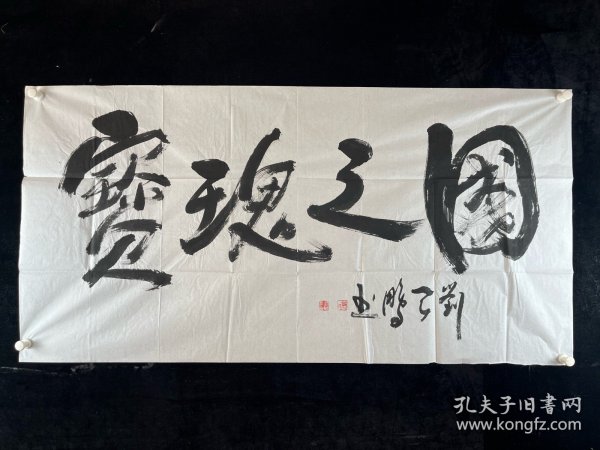 國之瑰寶
劉 鵬书
孔夫子旧书网
www.kongfz.com